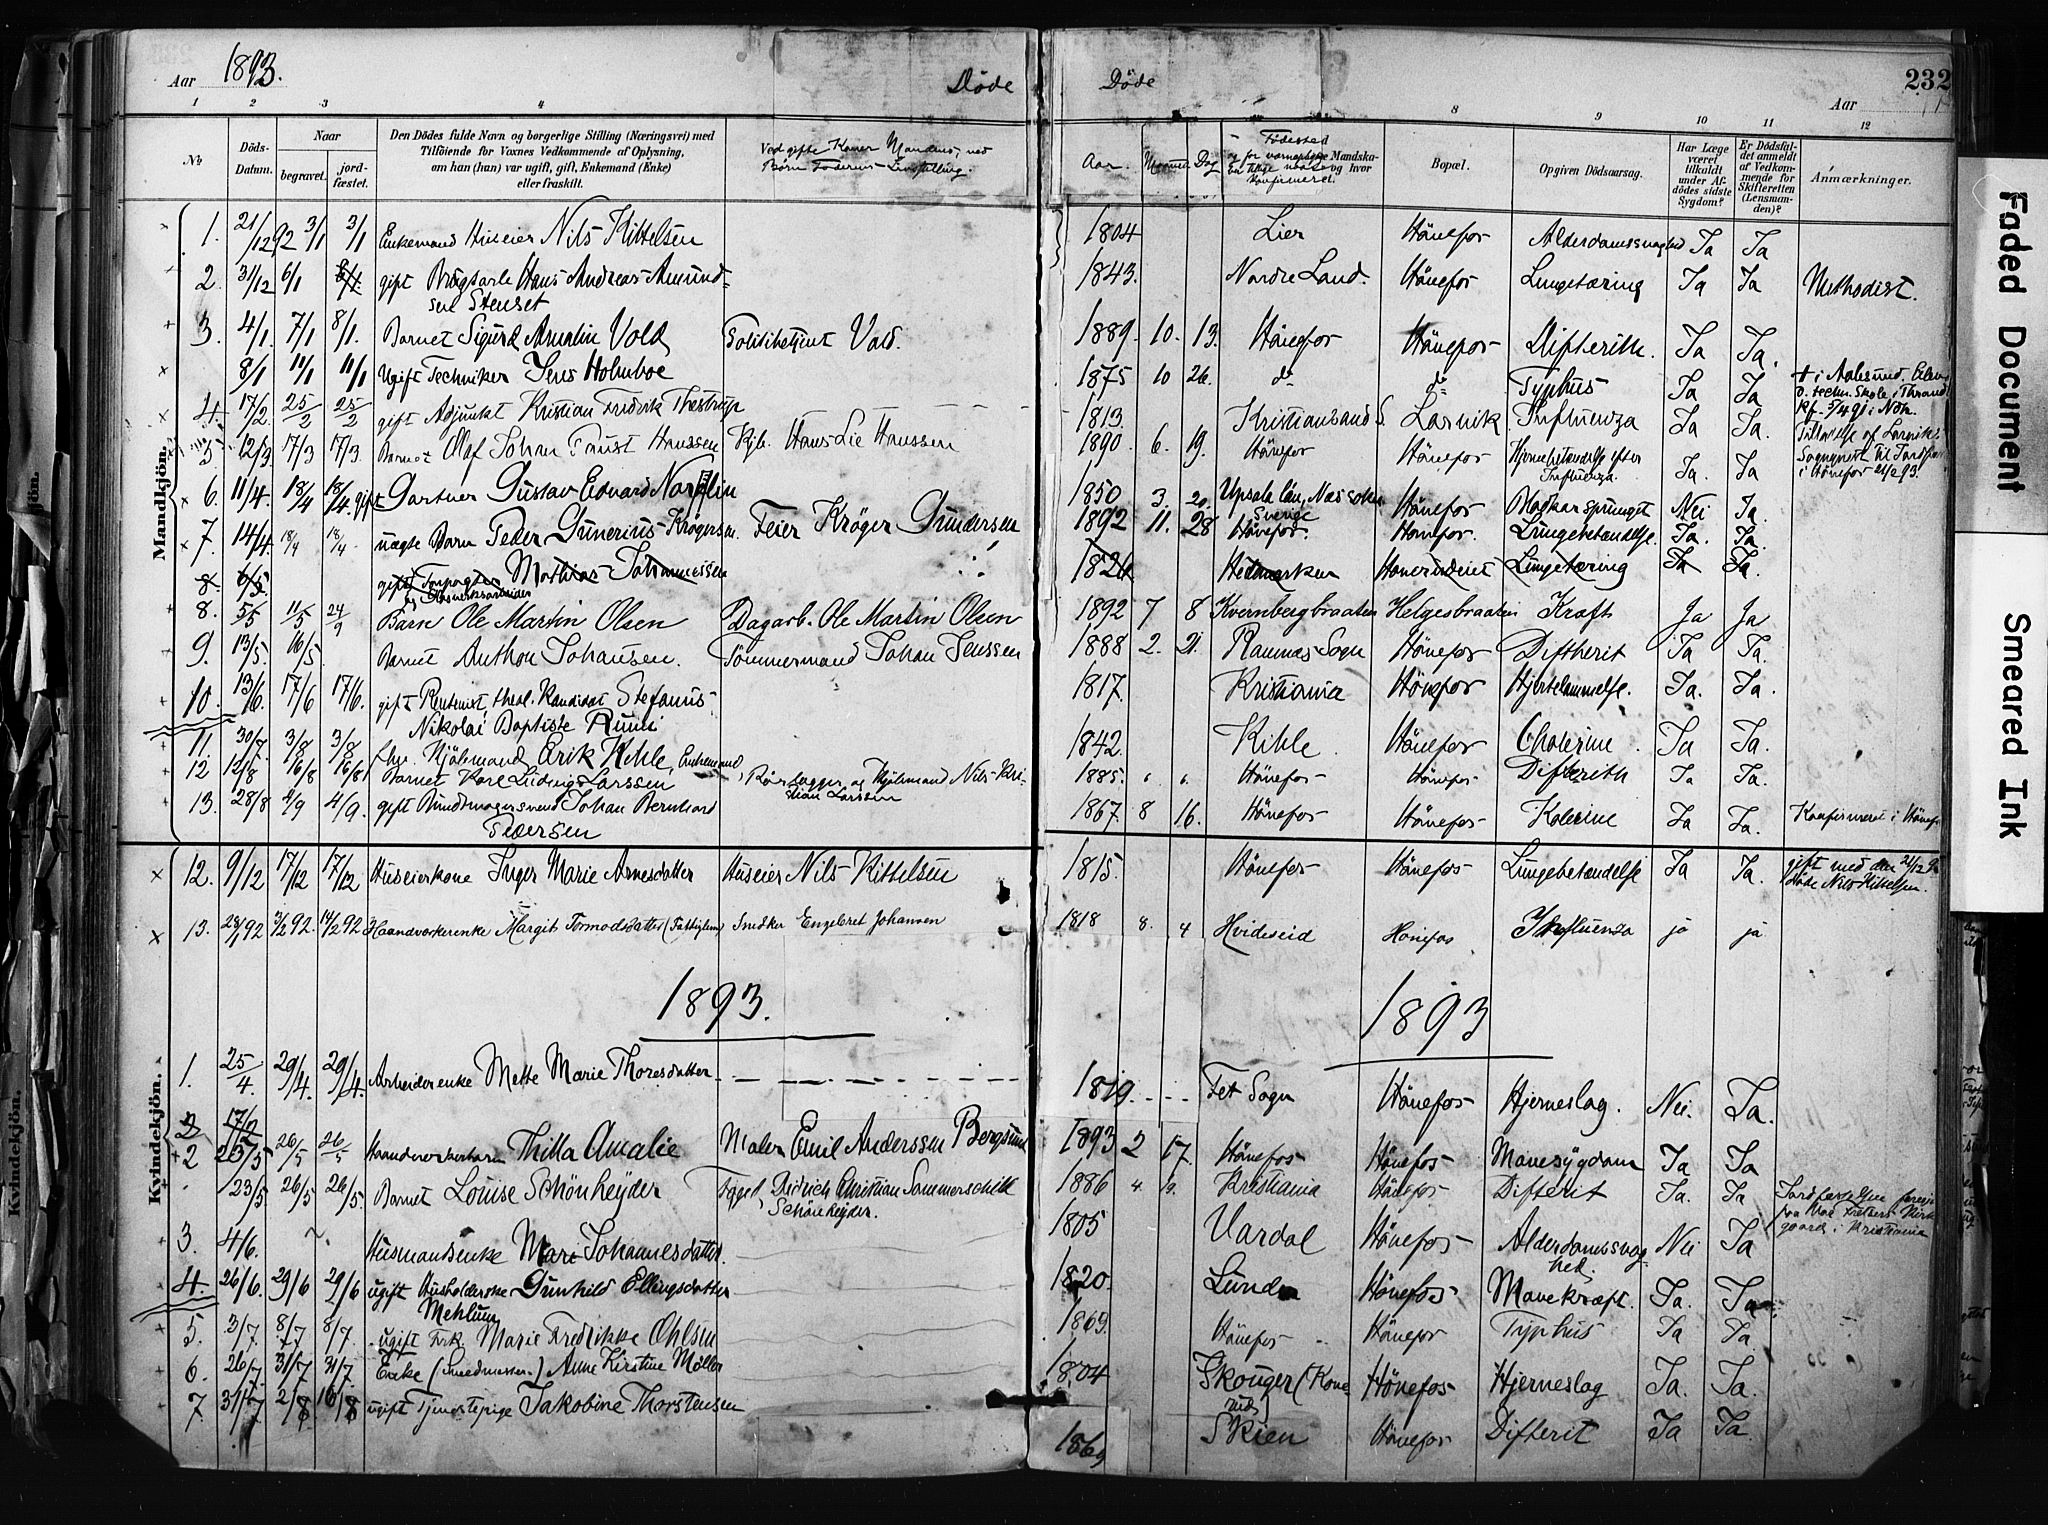 Aar 1893. Døde Døde Aar 232
1 2 3 4 8 9 10 11 12
No Døds-Datum. Naar begravet. jordfæstet. Den Dødes fulde Navn og borgerlige Stilling (Næringsvei) med Tilføiende for Voxnes Vedkommende af Oplysning, om han (hun) var ugift, gift, Enkemand (Enke) eller fraskilt. Ved gifte Koner Mandens, ved Børn Faderens Livsstilling. Aar Maaned Dag Fødested Bopæl. Opgiven Dødsaarsag. Har Læge været tilkaldt under Afdødes sidste Sygdom? Er Dødsfaldet anmeldt af Vedkommende for Skifteretten (Lensmanden)? Anmærkninger.
Mandkjøn.
1. 21/12 92 3/1 3/1 Enkemand Huseier Nils Kittelsen 1804 Lier Hönefos Alderdomssvaghed Ja Ja
2. 31/12 6/1 6/1 gift Brugsarb. Hans Andreas Amund- 1843. Nordre Land. Hönefos Lungetæring Ja Ja Methodist.
sen Stenset
3. 4/1 7/1 8/1. Barnet Sigurd Amalin Vold Politibetjent Vold. 1889. 10. 13. Hönefos Hönefos Difterith. Ja Ja.
8/1 11/1 11/1 Ugift Techniker Jens Holmboe 1875 10 26. do do Typhus Ja Ja † i Aalesund. Elev
v. techn. Skole i Throndh
4. 17/2. 25/2 25/2 gift Adjunkt Kristian Fredrik Thestrup 1813. Kristianssand S. Larvik Influenza Ja Ja. Kf. 5/4 91 i Nor.
5 12/3 17/3 17/3. Barnet Olaf Johan Faust Hanssen Kjb. Hans Lie Hanssen 1890. 6. 19. Hönefos Hönefos Hjernebetændelse efter Influenza. Ja. Ja
i Hönefos 21/2 93.
6. 11/4. 18/4 18/4 gift Gartner Gustav Edvard Norelin 1850 3. 20. Upsala län, Næs soken Sverige Hönefos Blodkar sprunget Nei Ja.
7. 14/4. 18/4 18/4. uægte Barn Peder Gunerius Krögersen. Feier Kröger Gundersen 1892 11. 28 Hönefos. Hönefos. Lungebetændelse. Ja. Ja.
8. 6/5. gift Forpagter Mathias Johannessen 1826 Hedmarken Hönefos Lungetæring Ja Ja.
8. 5/5 11/5 24/9 Barn Ole Martin Olsen Dagarb. Ole Martin Olsen 1892 7 8 Kvernbergbraaten Helgesbraaten Kraft Ja Ja
9. 13/5. 16/5. Barnet Anthon Johansen. Tömmermand Johan Jenssen 1888 2. 21. Ramnæs Sogn Hönefos Diftherit Ja Ja.
10. 13/6. 17/6 17/6. gift Rentenist, theol. Kandidat Stefanus 1817. Kristiania Hönefos Hjertelammelse. Ja. Ja.
Nikolai Baptiste
11. 30/7. 3/8 3/8 fhv. Kjöbmand Erik Kihle, Enkemand 1842. Kihle. Hönefos Cholerine. Ja Ja.
12 12/8 16/8 16/8 Barnet Karl Ludvig Larssen, Rörlægger og Kjöbmand Nils Kri- 1885. Hönefos Hönefos Difterith Ja Ja.
stian Larssen
13. 28/8 4/9 4/9. gift Bundtmagersvend Johan Bernhard 1867. 8 16. Hönefos Hönefos Kolerine Ja Ja. Konfirmeret i Hönefos
Pedersen
12. 9/12 17/12 17/12 Huseierkone Inger Marie Arnesdatter Huseier Nils Kittelsen 1815. Hönefos Hönefos Lungebetændelse Ja Ja. gift med den 21/12 92
døde Nils Kittelsen.
13. 28/1 92 3/2 92. 14/2 92 Haandværkerenke Margit Tormodsdatter (Fattiglem) Snedker Engebret Johansen 1818 8. 4 Hvideseid Hönefos Influenza ja ja
1893. 1893
Kvindekjøn.
1. 25/4 29/4. 29/4. Arbeiderenke Mette Marie Thoresdatter 1819. Fet Sogn Hönefos Hjerneslag. Nei. Ja.
2 17/2
2 23/5 26/5 26/5 Haandverkerbarn Thilla Amalie Maler Emil Anderssen Bergsund 1893 2 17. Hönefos Hönefos Mavesygdom Ja Ja
23/5 26/5 26/5. Barnet Louise Schönheyder Didrich Christian Sommerschild Schönheyder. 1886 4. 19. Kristiania Hönefos Difterit Ja. Ja
gaard i Kristiania
3. 4/6. Husmandsenke Mari Johannesdatter. 1805 Vardal Hönefos Alderdomssvag-hed. Nei Ja
4. 26/6. 29/6 29/6 ugift Husholderske Gunhild Ellingsdatter 1820. Lunder Hönefos Mavekræft. Ja. Ja
Mehlum
5. 3/7. 8/7 8/7. ugift Frk. Marie Fredrikke Ohlsen 1869. Hönefos Hönefos Typhus Ja Ja.
6. 26/7. 31/7 31/7 Enke (Smedmester.) Anne Kirstine Møller 1804 Skouger (Kone-rud) Hönefos Hjerneslag Ja. Ja.
7 31/7 2/8 10/8 ugift Tjenestepige Jakobine Thorstensen 1869 Skien Hönefos Difterit Ja Ja.
Faded Document Smeared Ink
Kvindekjön.